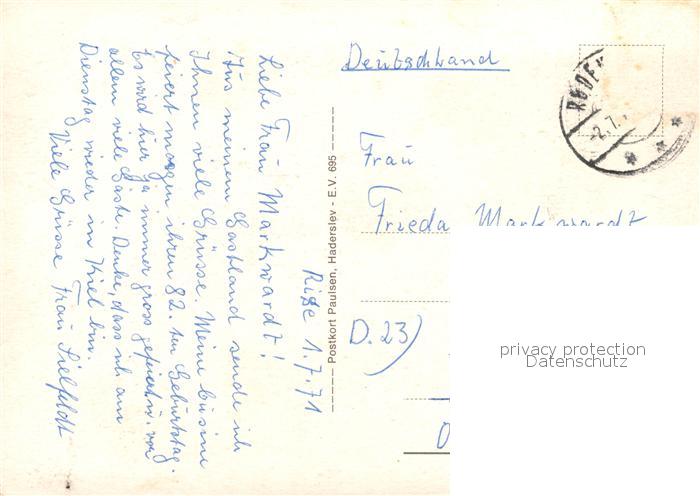 Rise 1.7.71
Liebe Frau Markwardt!
Aus meinem Gastland sende ich
Ihnen viele Grüsse. Meine Cusine
feiert morgen ihren 82. ten Geburtstag.
Es wird hier ja immer gross gefeiert u. vor
allem viele Gäste. Denke, dass ich am
Dienstag wieder in Kiel bin.
Viele Grüsse Frau Sielfeldt
Postkort Paulsen, Haderslev - E.V. 695
Deutschland
RØDEK
-2.7.
Frau
Frieda Markwardt
D. 23)
privacy protection
Datenschutz